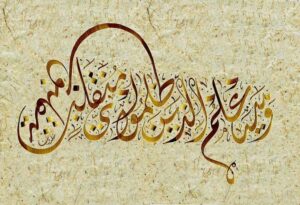 وسيعلم الذين ظلموا أي منقلب ينقلبون